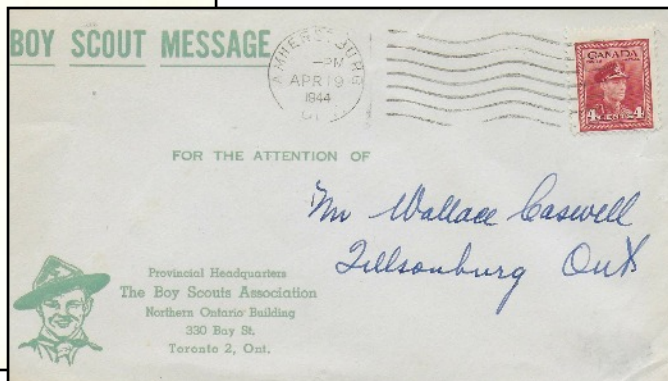 BOY SCOUT MESSAGE
AMHERSTBURG
-PM
APR 19
1944
CANADA
4 CENTS 4
FOR THE ATTENTION OF
Mr Wallace Caswell
Tillsonburg Ont
Provincial Headquarters
The Boy Scouts Association
Northern Ontario Building
330 Bay St.
Toronto 2, Ont.